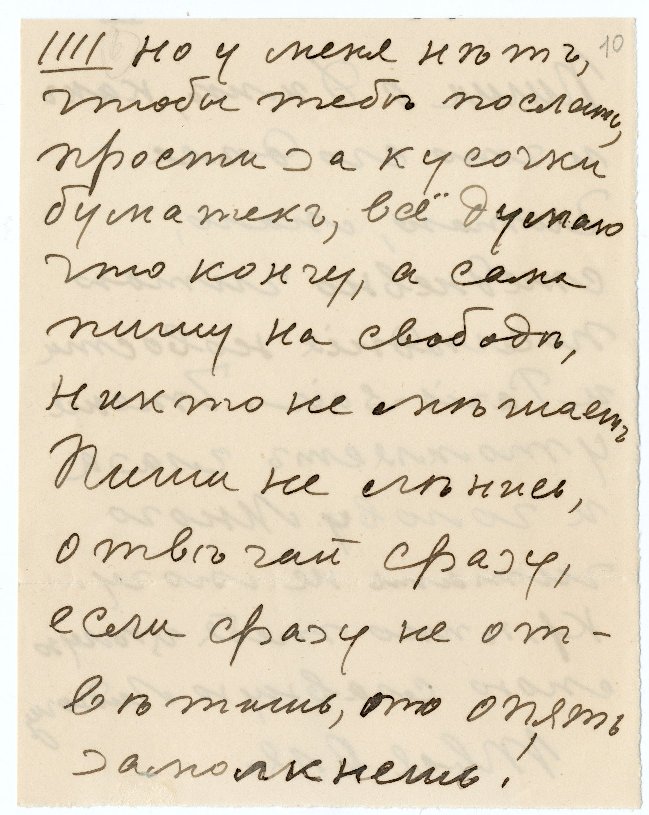 IIII но у меня нѣтъ, 10
чтобы тебѣ послать,
прости за кусочки
бумажекъ, всё думаю
что кончу, а сама
пишу на свободѣ,
никто не мѣшаетъ
Пиши не лѣнись,
отвѣчай сразу,
если сразу не от-
вѣтишь, то опять
замолкнешь!